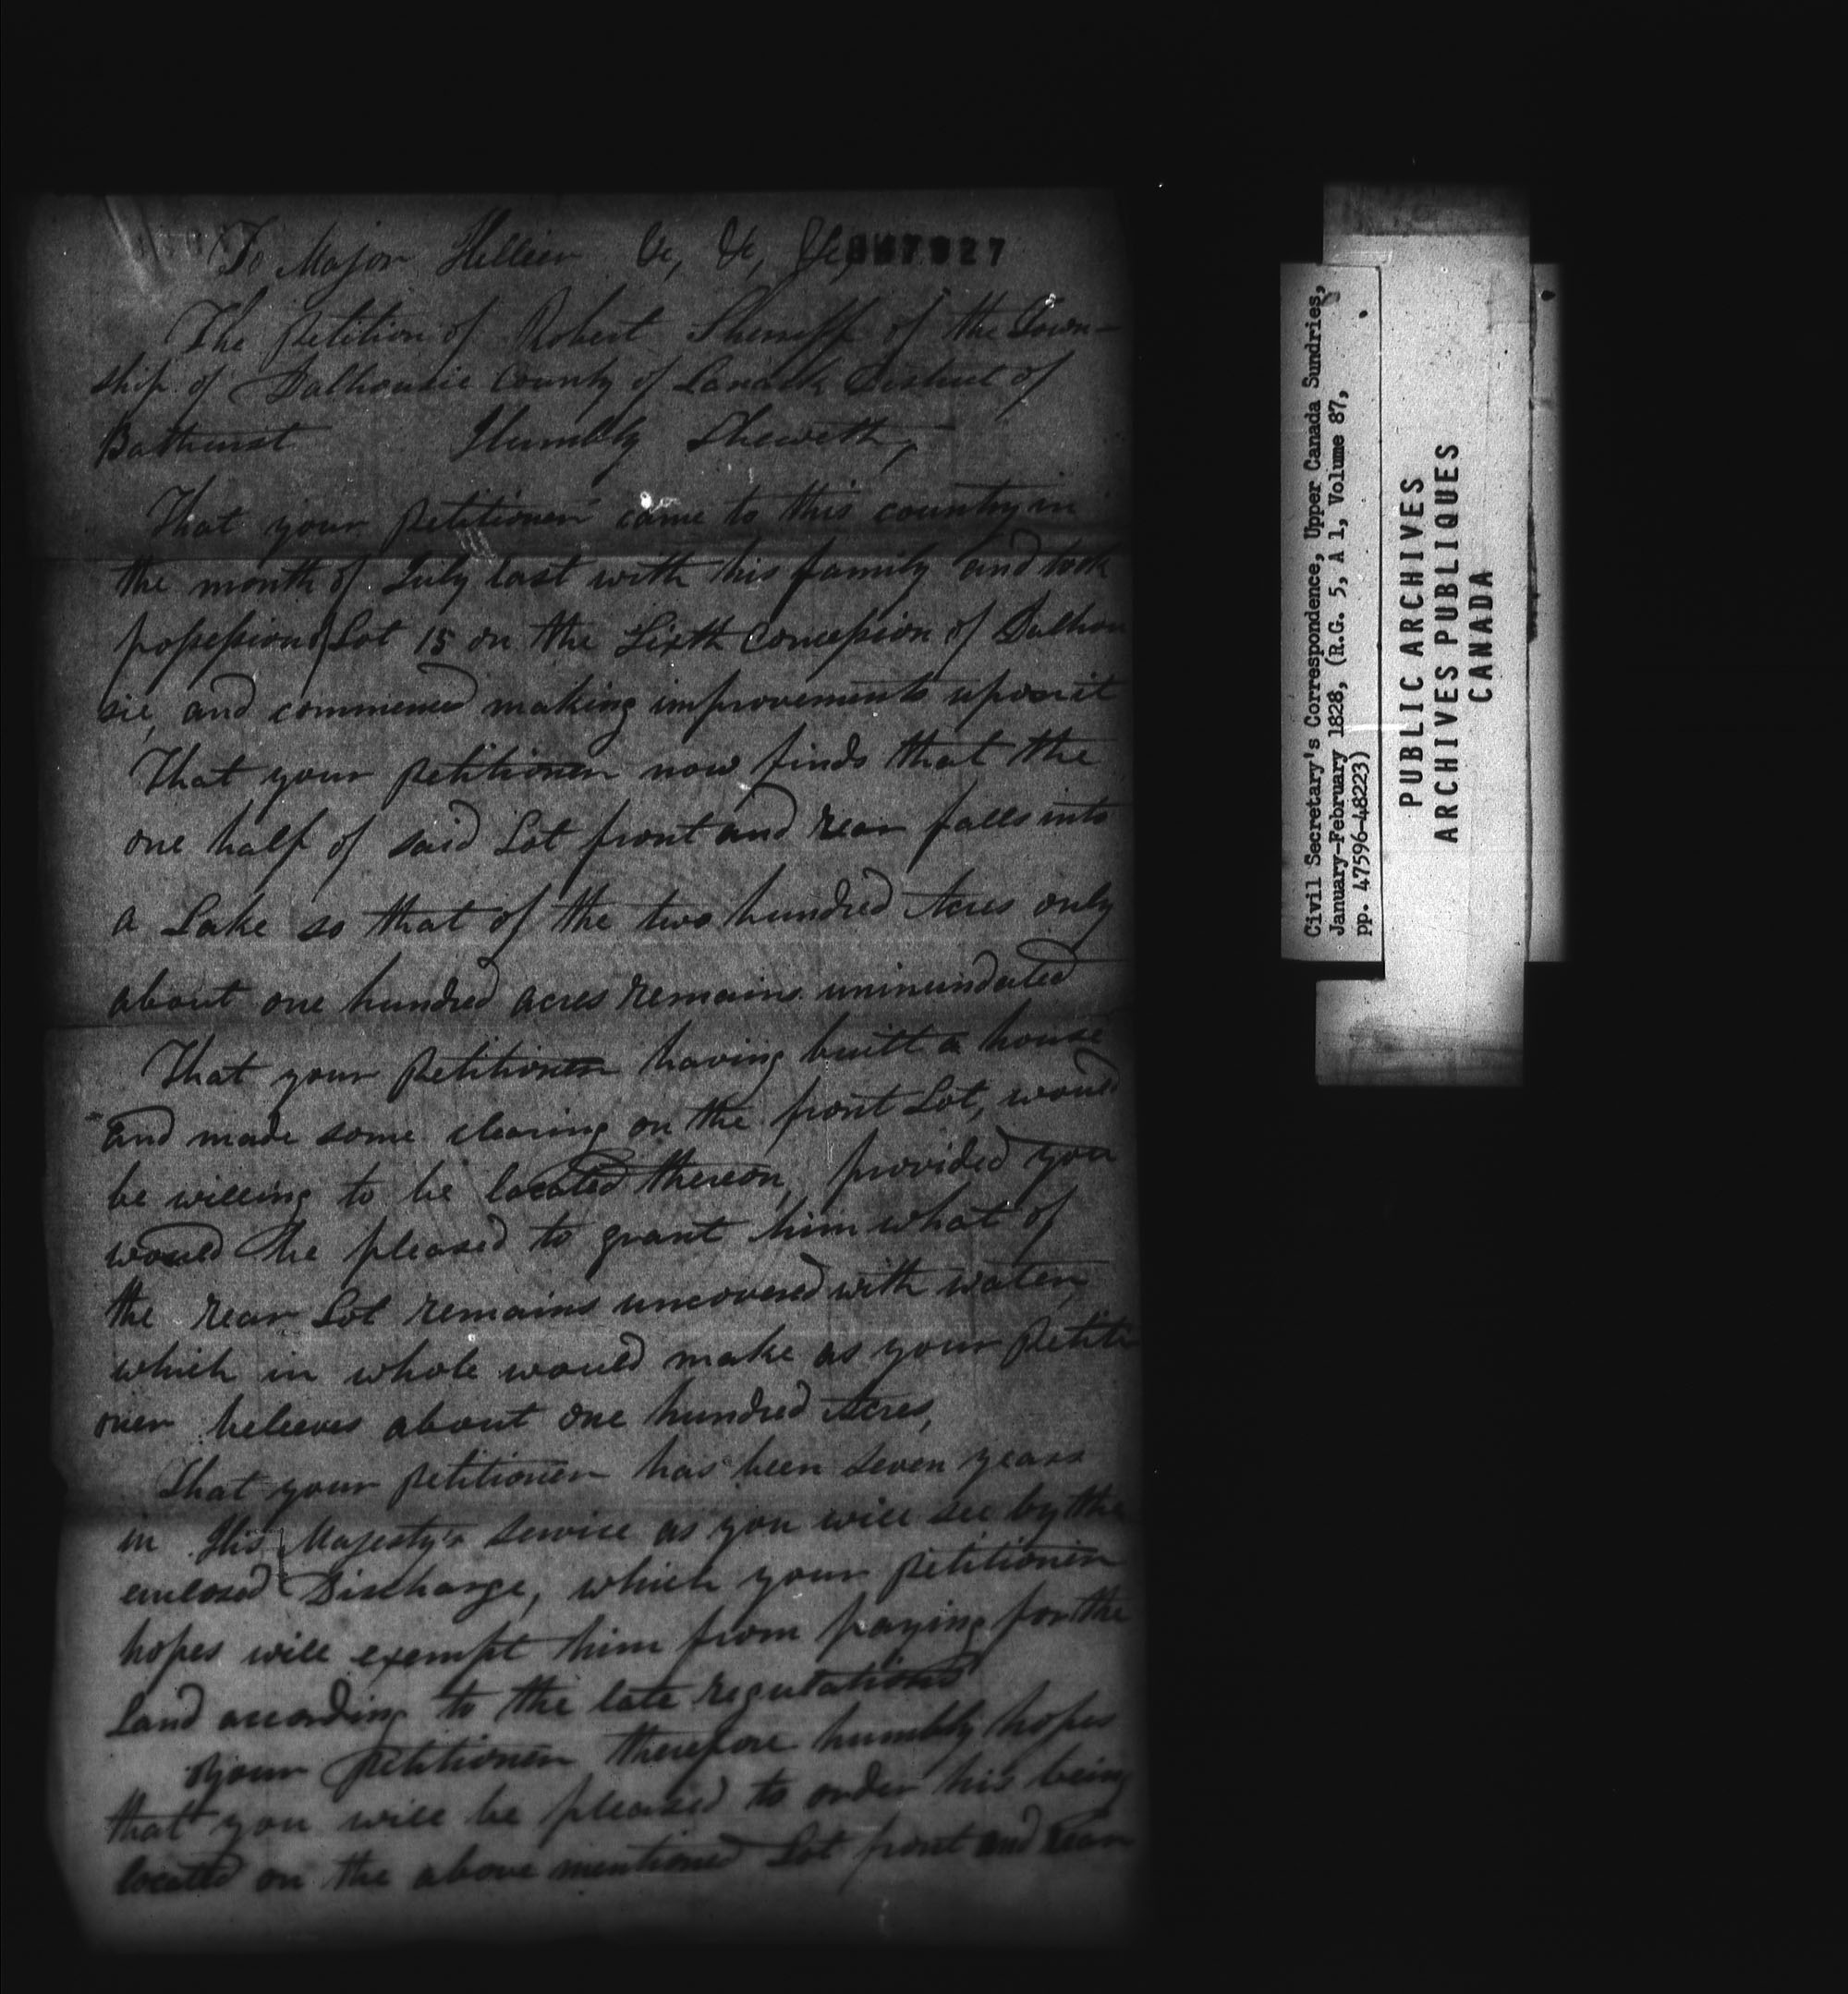 To Major Hillier &c, &c, &c,
The Petition of Robert Sherriff of the Town-
ship of Dalhousie County of Lanark District of
Bathurst Humbly Sheweth,
That your petitioner came to this country in
the month of July last with his family and took
possession of Lot 15 on the Sixth Concession of Dalhou
sie, and commenced making improvements upon it
That your petitioner now finds that the
one half of said Lot front and rear falls into
a Lake so that of the two hundred Acres only
about one hundred acres remains uninundated
That your petitioner having built a house
and made some clearing on the front Lot, would
be willing to be located thereon, provided you
would be pleased to grant him what of
the rear Lot remains uncovered with water,
which in whole would make as your Petiti
oner believes about one hundred Acres,
That your petitioner has been seven years
in His Majesty's service as you will see by the
enclosed Discharge, which your petitioner
hopes will exempt him from paying for the
Land according to the late regulations
Your Petitioner therefore humbly hopes
that you will be pleased to order his being
located on the above mentioned Lot front and rear
Civil Secretary's Correspondence, Upper Canada Sundries,
January-February 1828, (R.G. 5, A 1, Volume 87,
pp. 47596-48223)
PUBLIC ARCHIVES
ARCHIVES PUBLIQUES
CANADA